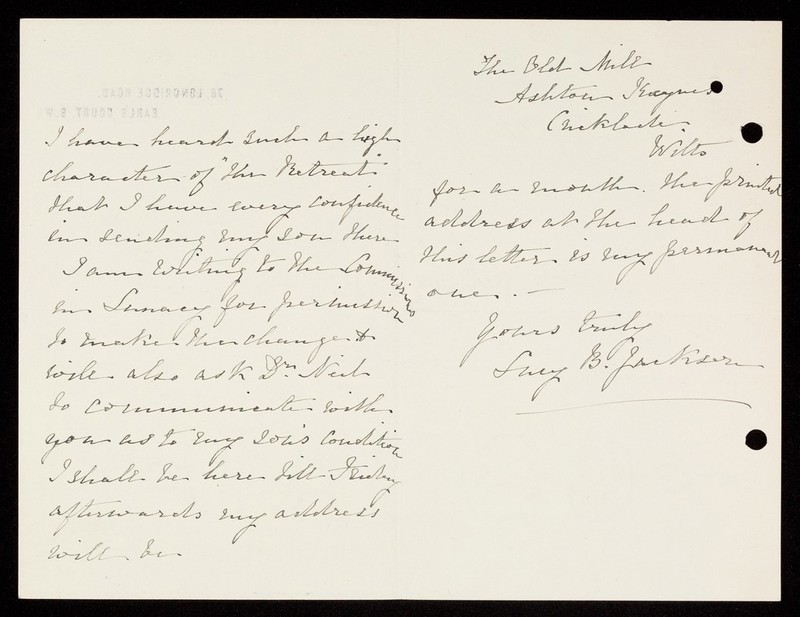 I have heard such a high
character of "The Retreat"
that I have every confidence
in sending my son there
I am writing to the Commissioners
in Lunacy for permission
to make the change &
will also ask Dr. Neil
to communicate with
you as to my son's condition
I shall be here till Friday
afterwards my address
will be
The Old Mill
Ashton Keynes
Cricklade
Wilts
for a month. The printed
address at the head of
this letter is my permanent
one. —
Yours truly
Lucy B. Jackson